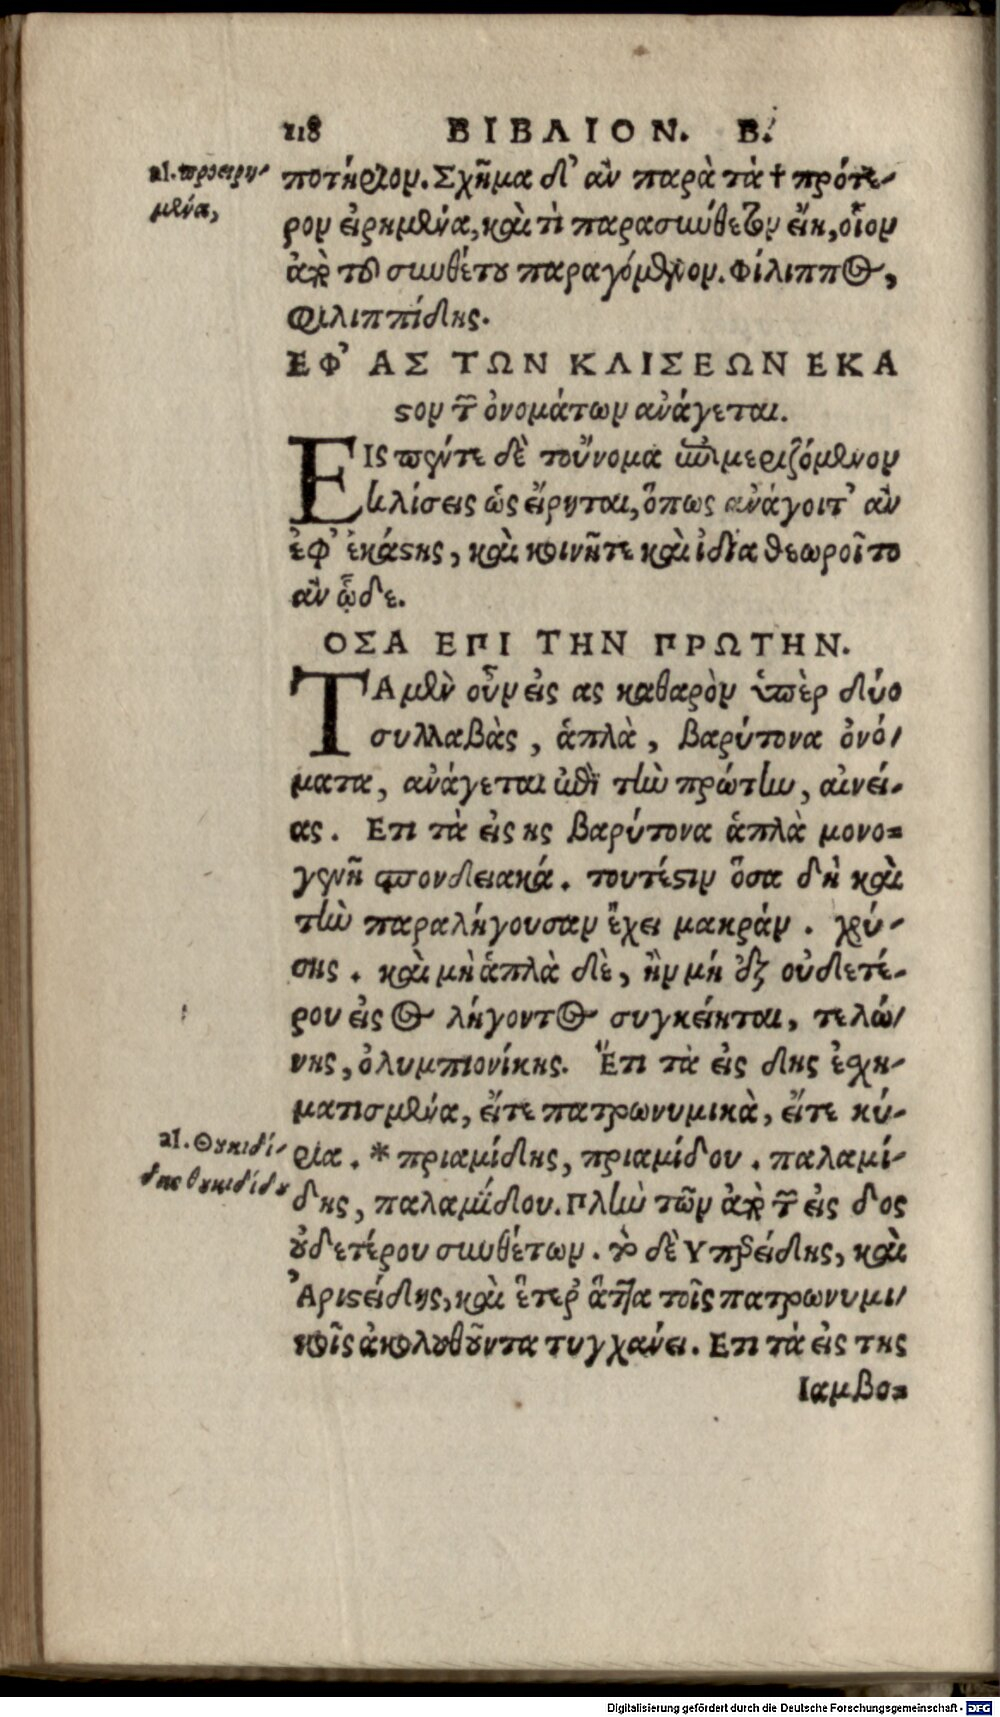 118 ΒΙΒΛΙΟΝ. Β.
al. προειρη-
μένα,
ποτήριον. Σχῆμα δ' ἂν παρὰ τὰ † πρότε-
ρον εἰρημένα, καὶ τὶ παρασυνθετον εἴη, οἷον
ἀπὸ τοῦ συνθέτου παραγόμενον. Φίλιππος,
Φιλιππίδης.
ΕΦ' ΑΣ ΤΩΝ ΚΛΙΣΕΩΝ ΕΚΑ
στον τῶν ὀνομάτων ἀνάγεται.
ΕΙς πέντε δὲ τοὔνομα ἐπιμεριζόμενον
κλίσεις ὡς εἴρηται, ὅπως ἀνάγοιτ' ἂν
ἐφ' ἑκάστης, καὶ κοινῆτε καὶ ἰδία θεωροῖτο
ἂν ὧδε.
ΟΣΑ ΕΠΙ ΤΗΝ ΠΡΩΤΗΝ.
ΤΑ μὲν οὖν εἰς ας καθαρὸν ὑπὲρ δύο
συλλαβὰς, ἁπλὰ, βαρύτονα ὀνό-
ματα, ἀνάγεται ἐπὶ τὴν πρώτην, αἰνεί-
ας. Ετι τὰ εἰς ης βαρύτονα ἁπλὰ μονο=
γενῆ σπονδειακά. τουτέστιν ὅσα δὴ καὶ
τὴν παραλήγουσαν ἔχει μακράν. χρύ-
σης. καὶ μὴ ἁπλὰ δὲ, ἢν μή ἐξ οὐδετέ-
ρου εἰς ος λήγοντος συγκείηται, τελώ-
νης, ὀλυμπιονίκης. Ἔτι τὰ εἰς δης ἐσχη-
ματισμένα, εἴτε πατρωνυμικὰ, εἴτε κύ-
al. Θουκιδί-
δης θουκιδίδου
ρια. * πριαμίδης, πριαμίδου. παλαμί-
δης, παλαμίδου. Πλὴν τῶν ἀπὸ τῶν εἰς δος
οὐδετέρου συνθέτων. τὸ δὲ Υπερείδης, καὶ
Ἀριστείδης, καὶ ἕτερ' ἄττα τοῖς πατρωνυμι-
κοῖς ἀκολουθοῦντα τυγχάνει. Ετι τὰ εἰς της
Ιαμβο=
Digitalisierung gefördert durch die Deutsche Forschungsgemeinschaft - DFG